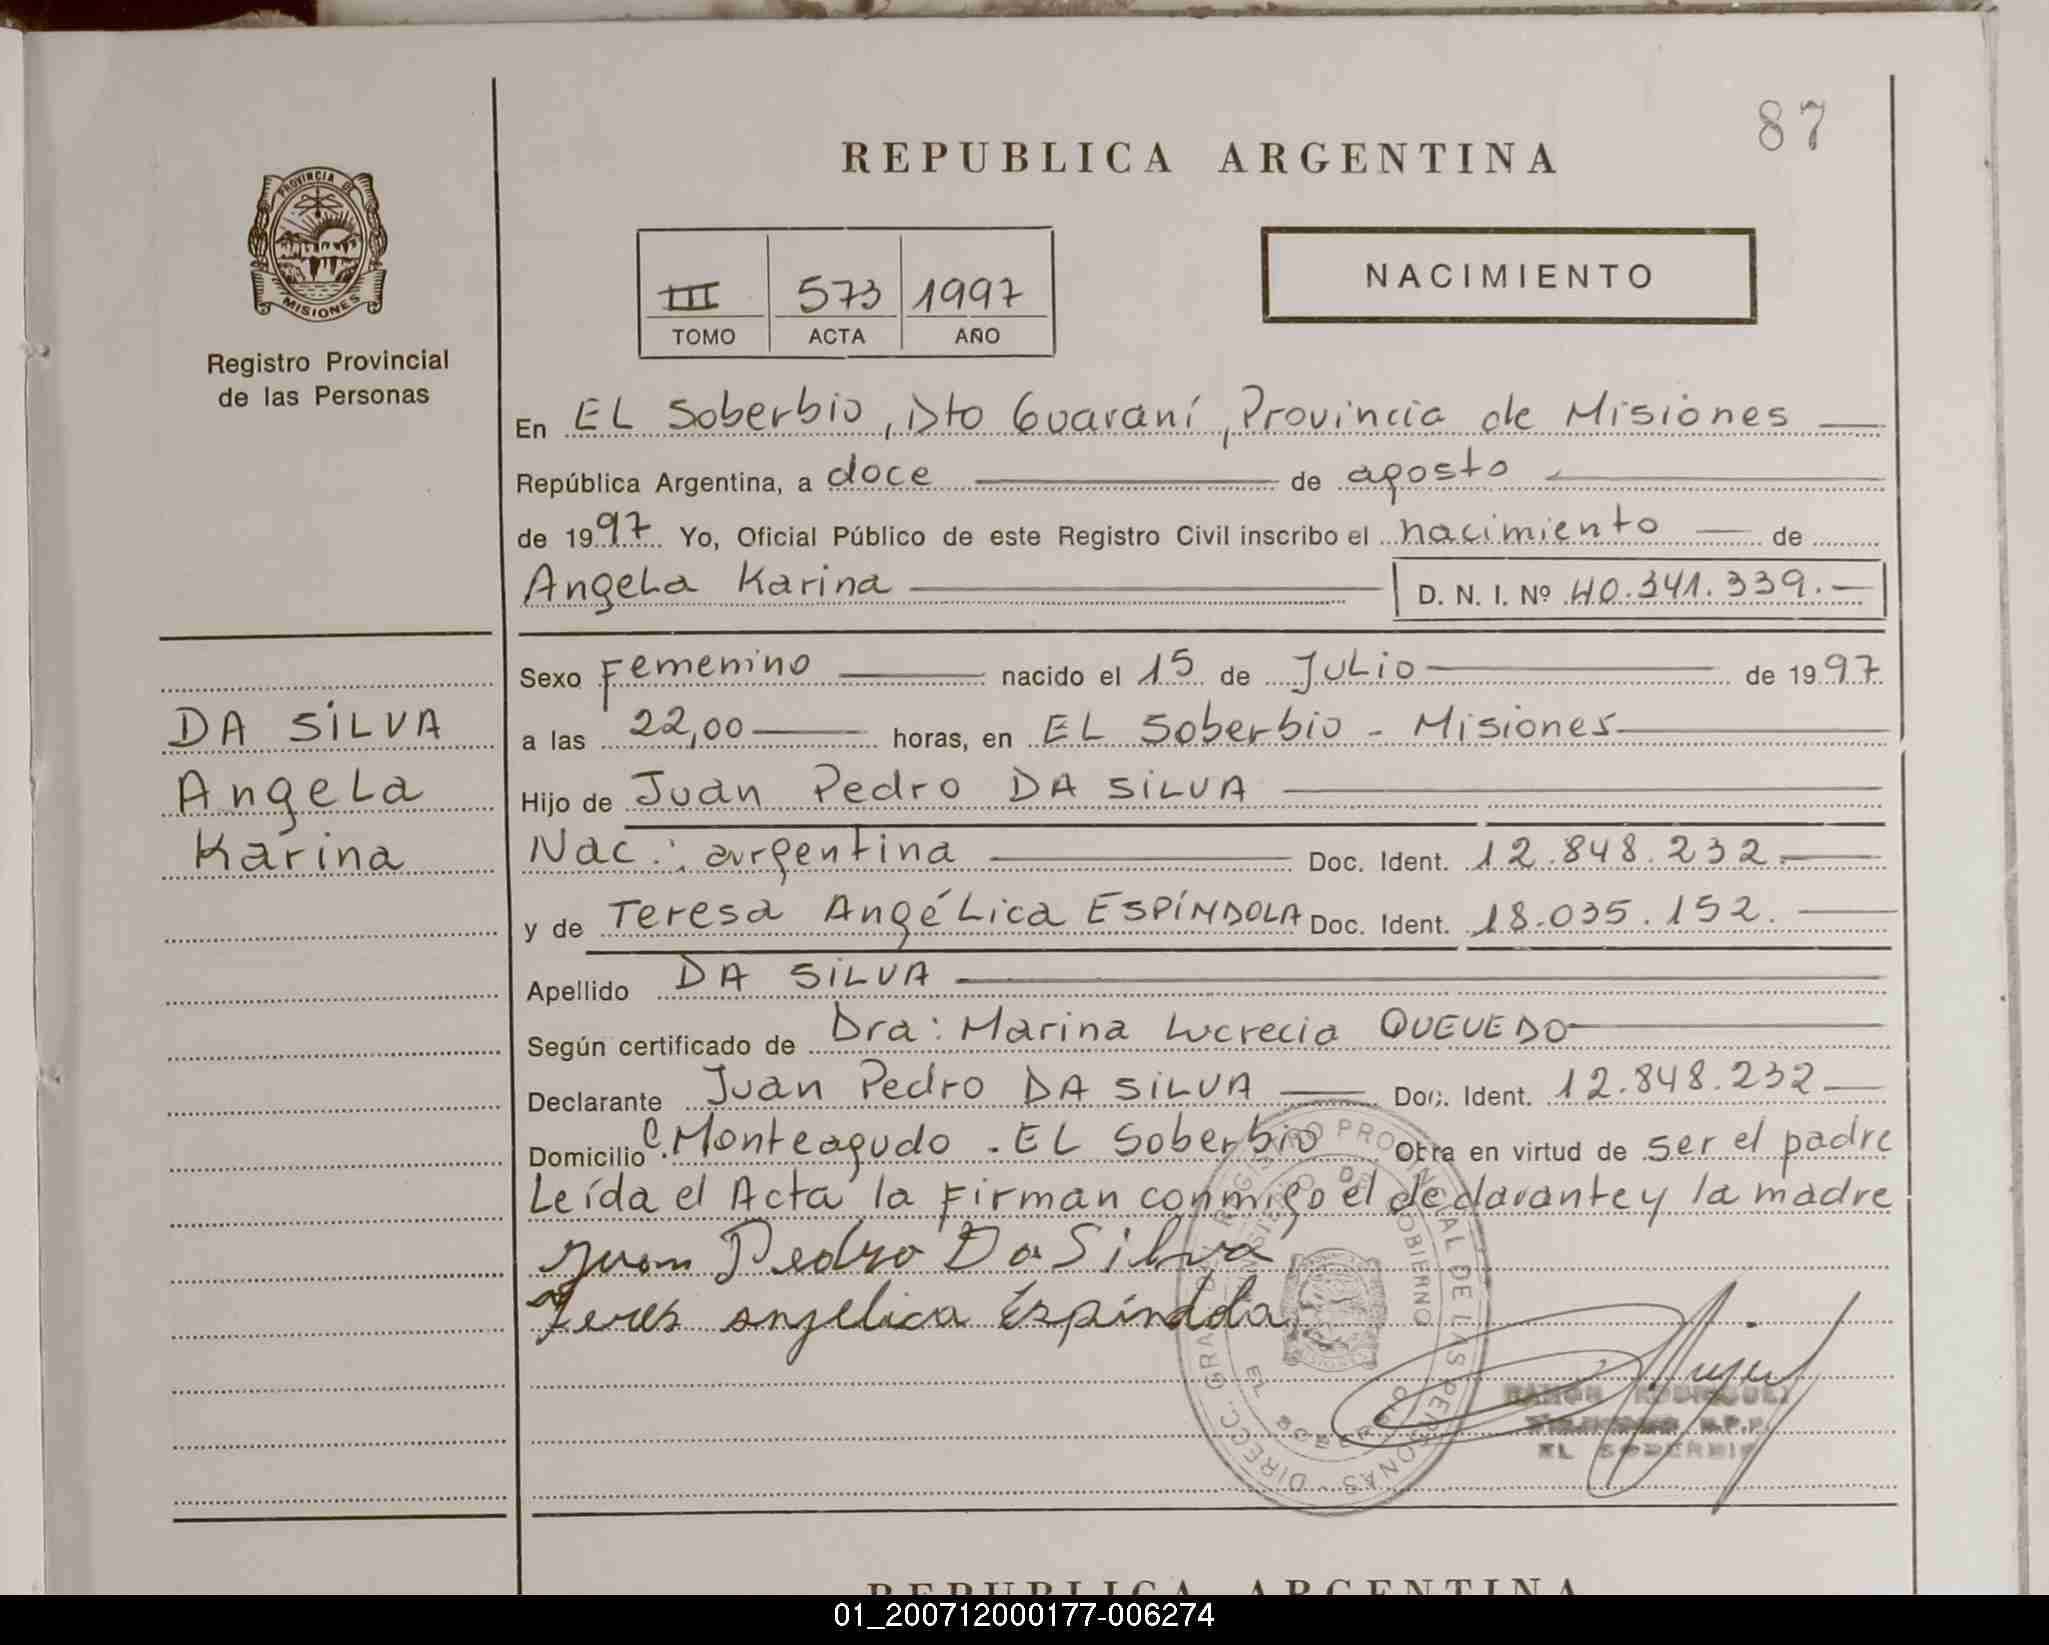 87
REPUBLICA ARGENTINA
PROVINCIA DE
MISIONES
Registro Provincial
de las Personas
III 573 1997
TOMO ACTA AÑO
NACIMIENTO
En EL Soberbio, Dto Guaraní, Provincia de Misiones
República Argentina, a doce de agosto
de 1997 Yo, Oficial Público de este Registro Civil inscribo el nacimiento de
Angela Karina D. N. I. Nº 40.341.339.
Sexo Femenino nacido el 15 de Julio de 1997
DA SILVA
a las 22,00 horas, en EL Soberbio - Misiones
Angela
Hijo de Juan Pedro DA SILVA
Karina
Nac.: argentina Doc. Ident. 12.848.232.
y de Teresa Angélica ESPÍNDOLA Doc. Ident. 18.035.152.
Apellido DA SILVA
Según certificado de Dra: Marina Lucrecia QUEVEDO
Declarante Juan Pedro DA SILVA Doc. Ident. 12.848.232
Domicilio C. Monteagudo - EL Soberbio Obra en virtud de ser el padre
Leída el Acta la Firman conmigo el declarante y la madre
Juan Pedro Da Silva
Teres angelica Espíndola
DIRECC. GRAL. REGISTRO PROVINCIAL DE LAS PERSONAS
EL SOBERBIO
EL SOBERBIO
REPUBLICA ARGENTINA
01_200712000177-006274